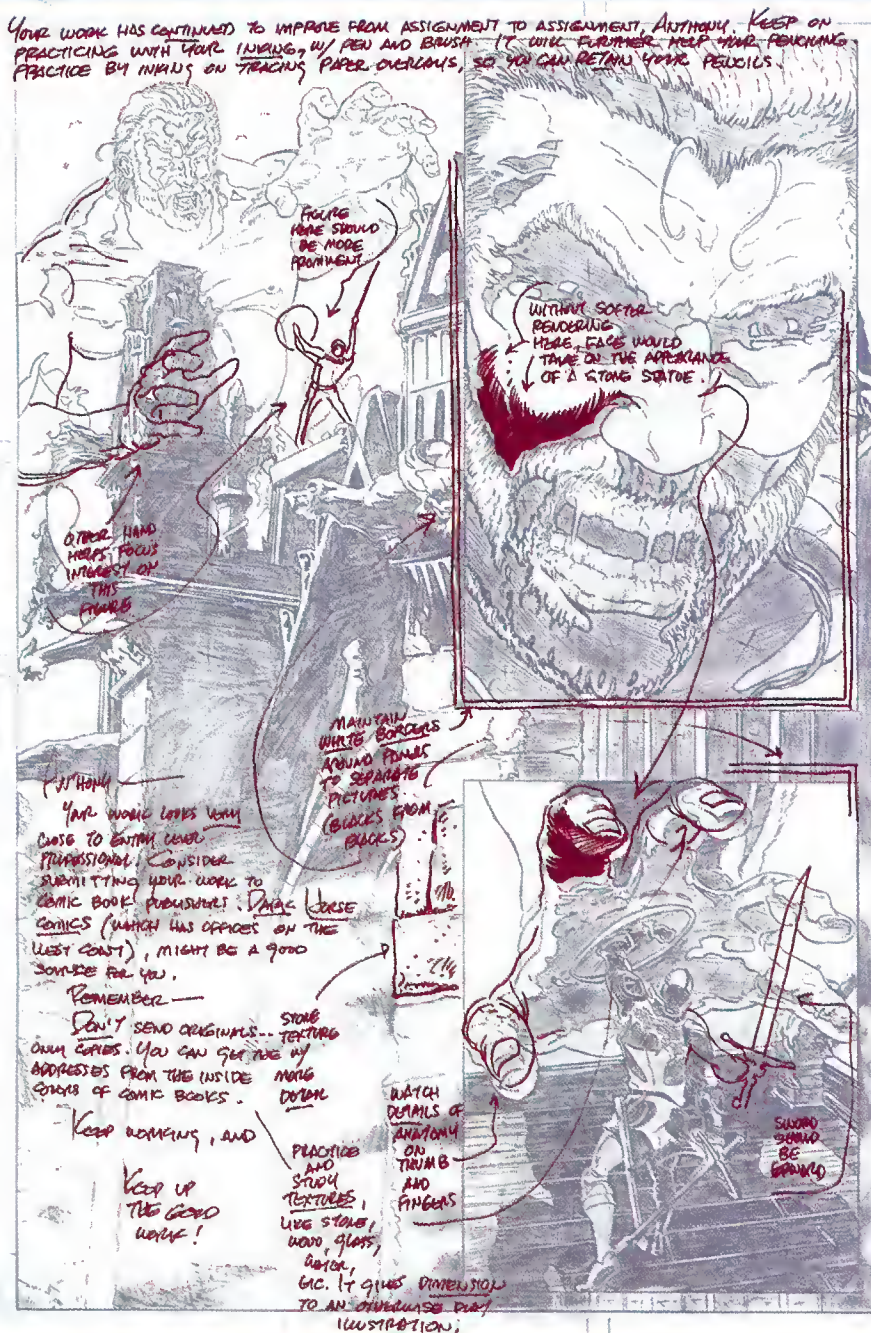 YOUR WORK HAS CONTINUED TO IMPROVE FROM ASSIGNMENT TO ASSIGNMENT, ANTHONY. KEEP ON
PRACTICING WITH YOUR INKING, W/ PEN AND BRUSH. IT WILL FURTHER HELP YOUR PENCILING
PRACTICE BY INKING ON TRACING PAPER OVERLAYS, SO YOU CAN RETAIN YOUR PENCILS.
FIGURE
HERE SHOULD
BE MORE
PROMINENT
WITHOUT SOFTER
RENDERING
HERE, FACE WOULD
TAKE ON THE APPEARANCE
OF A STONE STATUE.
OTHER HAND
HELPS FOCUS
INTEREST ON
THIS
FIGURE
MAINTAIN
WHITE BORDERS
AROUND PANELS
TO SEPARATE
PICTURES
(BLACKS FROM
BLACKS)
ANTHONY —
YOUR WORK LOOKS VERY
CLOSE TO ENTRY LEVEL
PROFESSIONAL. CONSIDER
SUBMITTING YOUR WORK TO
COMIC BOOK PUBLISHERS. DARK HORSE
COMICS (WHICH HAS OFFICES ON THE
WEST COAST), MIGHT BE A GOOD
SOURCE FOR YOU.
REMEMBER —
DON'T SEND ORIGINALS...
ONLY COPIES. YOU CAN GET THE
ADDRESSES FROM THE INSIDE
COVERS OF COMIC BOOKS.
KEEP WORKING, AND
KEEP UP
THE GOOD
WORK!
STONE
TEXTURE
W/
MORE
DETAIL
PRACTICE
AND
STUDY
TEXTURES,
LIKE STONE,
WOOD, GLASS,
WATER,
ETC. IT GIVES DIMENSION
TO AN OTHERWISE FLAT
ILLUSTRATION.
WATCH
DETAILS OF
ANATOMY
ON
THUMB
AND
FINGERS
SWORD
SHOULD
BE
UPWARD